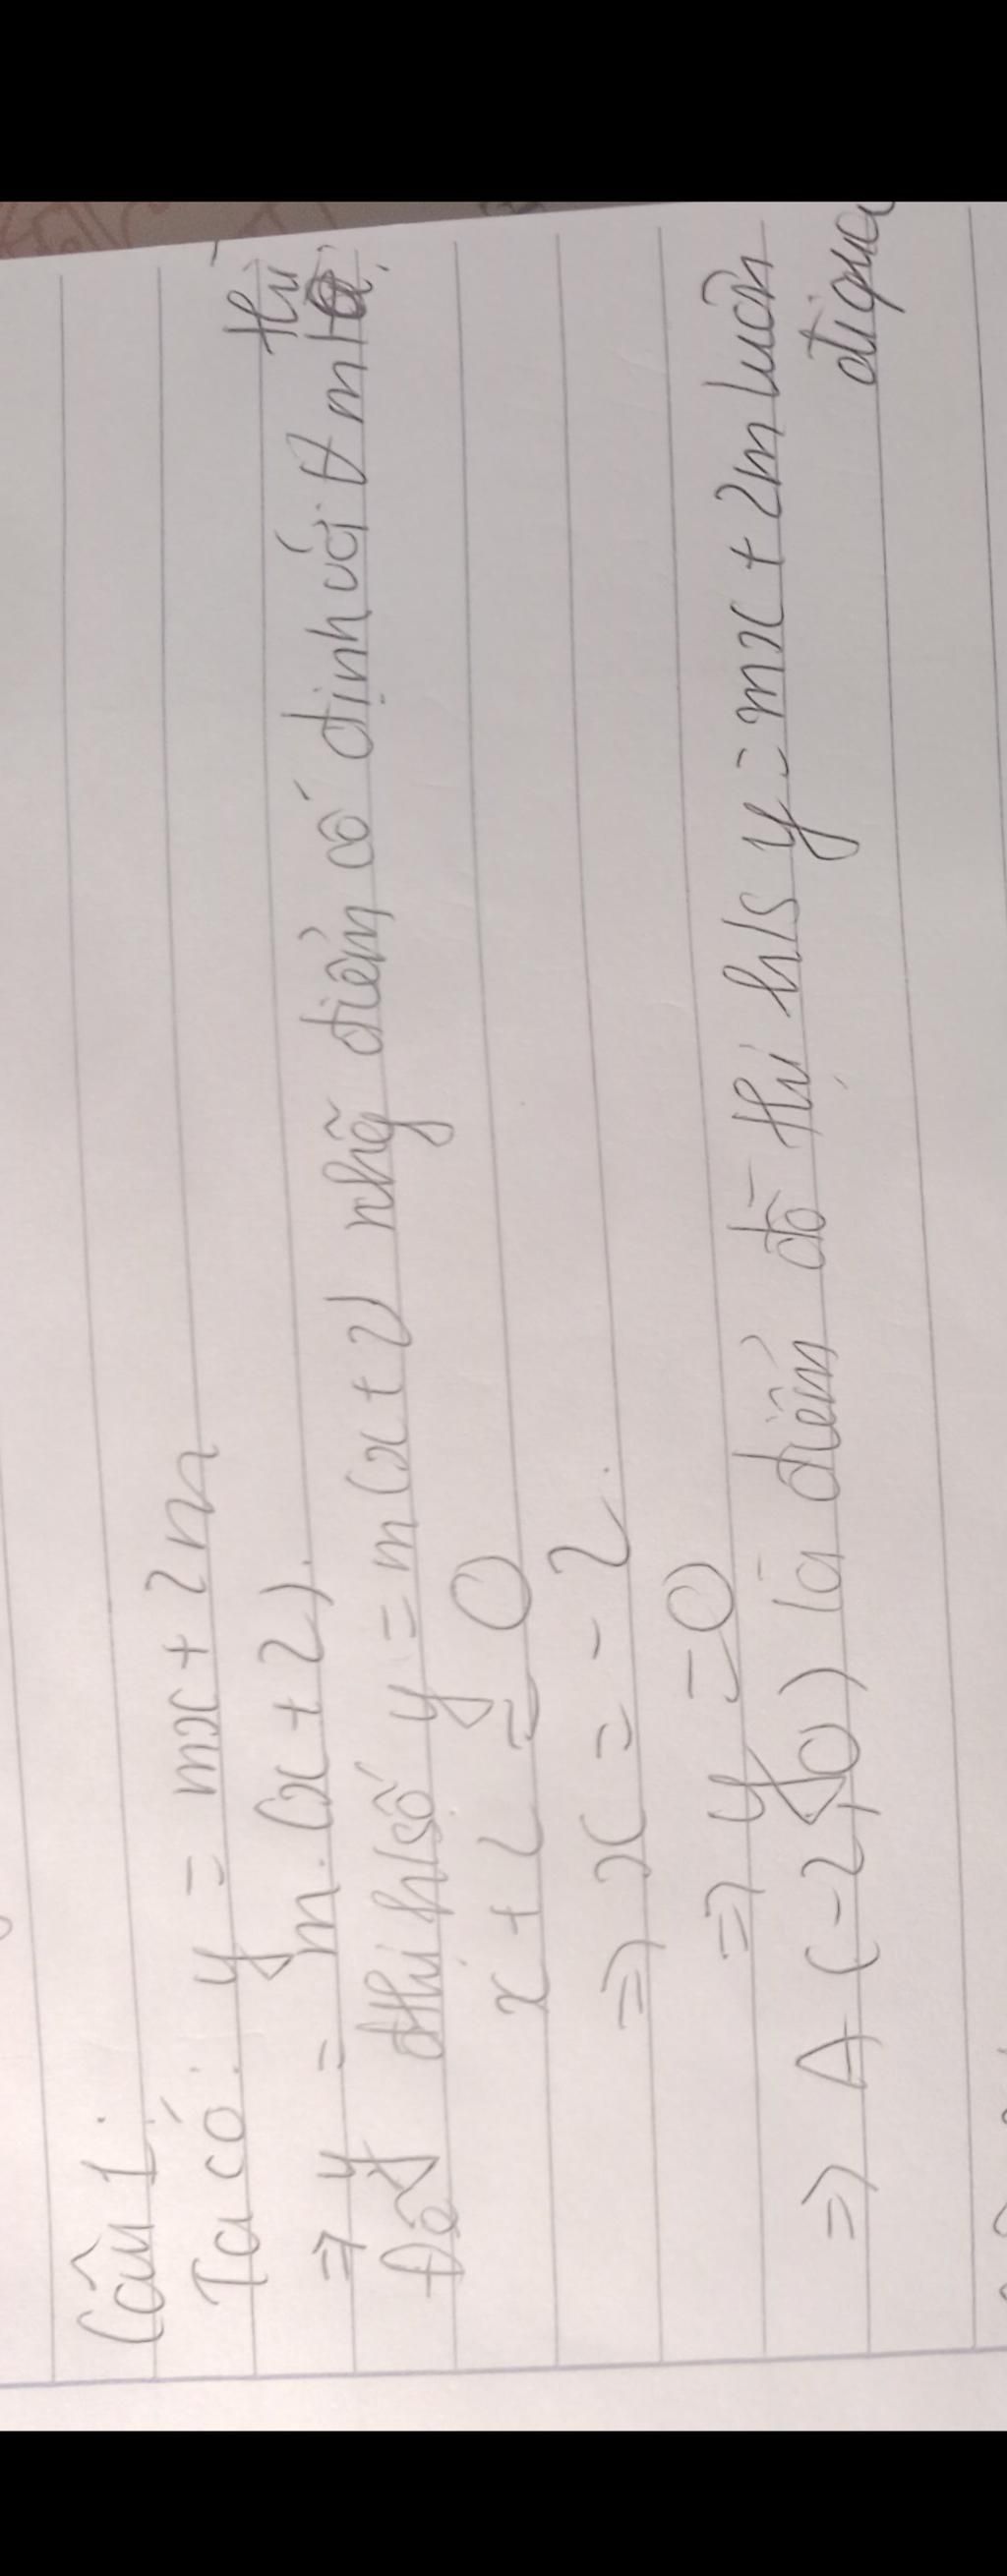 Câu 1:
Ta có: y = mx + 2m
⇒ y = m.(x + 2).
Để đthị h/số y = m(x + 2) nhg điểm cố định với ∀ m thì
x + 2 = 0
⇒ x = -2.
⇒ y = 0
⇒ A (-2, 0) là điểm đồ thị h/s y = mx + 2m luôn
đi qua